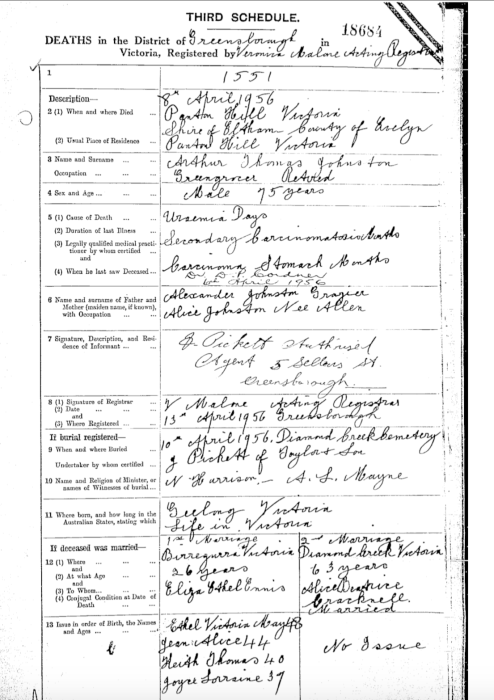 THIRD SCHEDULE.
18684
DEATHS in the District of Greensborough in
Victoria, Registered by Veronica Malone Acting Registrar
1 1551
Description—
2 (1) When and where Died ... 8th April, 1956
Panton Hill Victoria
Shire of Eltham County of Evelyn
(2) Usual Place of Residence Panton Hill Victoria
3 Name and Surname ... Arthur Thomas Johnston
Occupation ... Greengrocer Retired
4 Sex and Age ... Male 75 years
5 (1) Cause of Death ... Uraemia Days
(2) Duration of last Illness
(3) Legally qualified medical practi- Secondary Carcinomatosis Months
tioner by whom certified
and Carcinoma Stomach Months
(4) When he last saw Deceased... Dr
6th April 1956
6 Name and surname of Father and Alexander Johnston Grazier
Mother (maiden name, if known), Alice Johnston Nee Allen
with Occupation
7 Signature, Description, and Resi- J Pickett Authorised
dence of Informant ... Agent 5 Sellars St.
Greensborough.
8 (1) Signature of Registrar V Malone Acting Registrar
(2) Date 13th April 1956 Greensborough
and
(3) Where Registered ...
If burial registered— 10th April 1956. Diamond Creek Cemetery
9 When and where Buried
J Pickett of Taylor & Son
Undertaker by whom certified
10 Name and Religion of Minister, or N Harrison.— A. L. Mayne
names of Witnesses of burial...
11 Where born, and how long in the Geelong Victoria
Australian States, stating which Life in Victoria
1st Marriage 2nd Marriage
If deceased was married— Birregurra Victoria Diamond Creek Victoria
12 (1) Where ...
and 26 years 63 years
(2) At what Age
and
(3) To Whom... Eliza Ethel Ennis Alice Beatrice
(4) Conjugal Condition at Date of Cracknell.
Death ... Married
13 Issue in order of Birth, the Names Ethel Victoria May 48
and Ages ... Jean Alice 44 No Issue
Keith Thomas 40
Joyce Lorraine 37